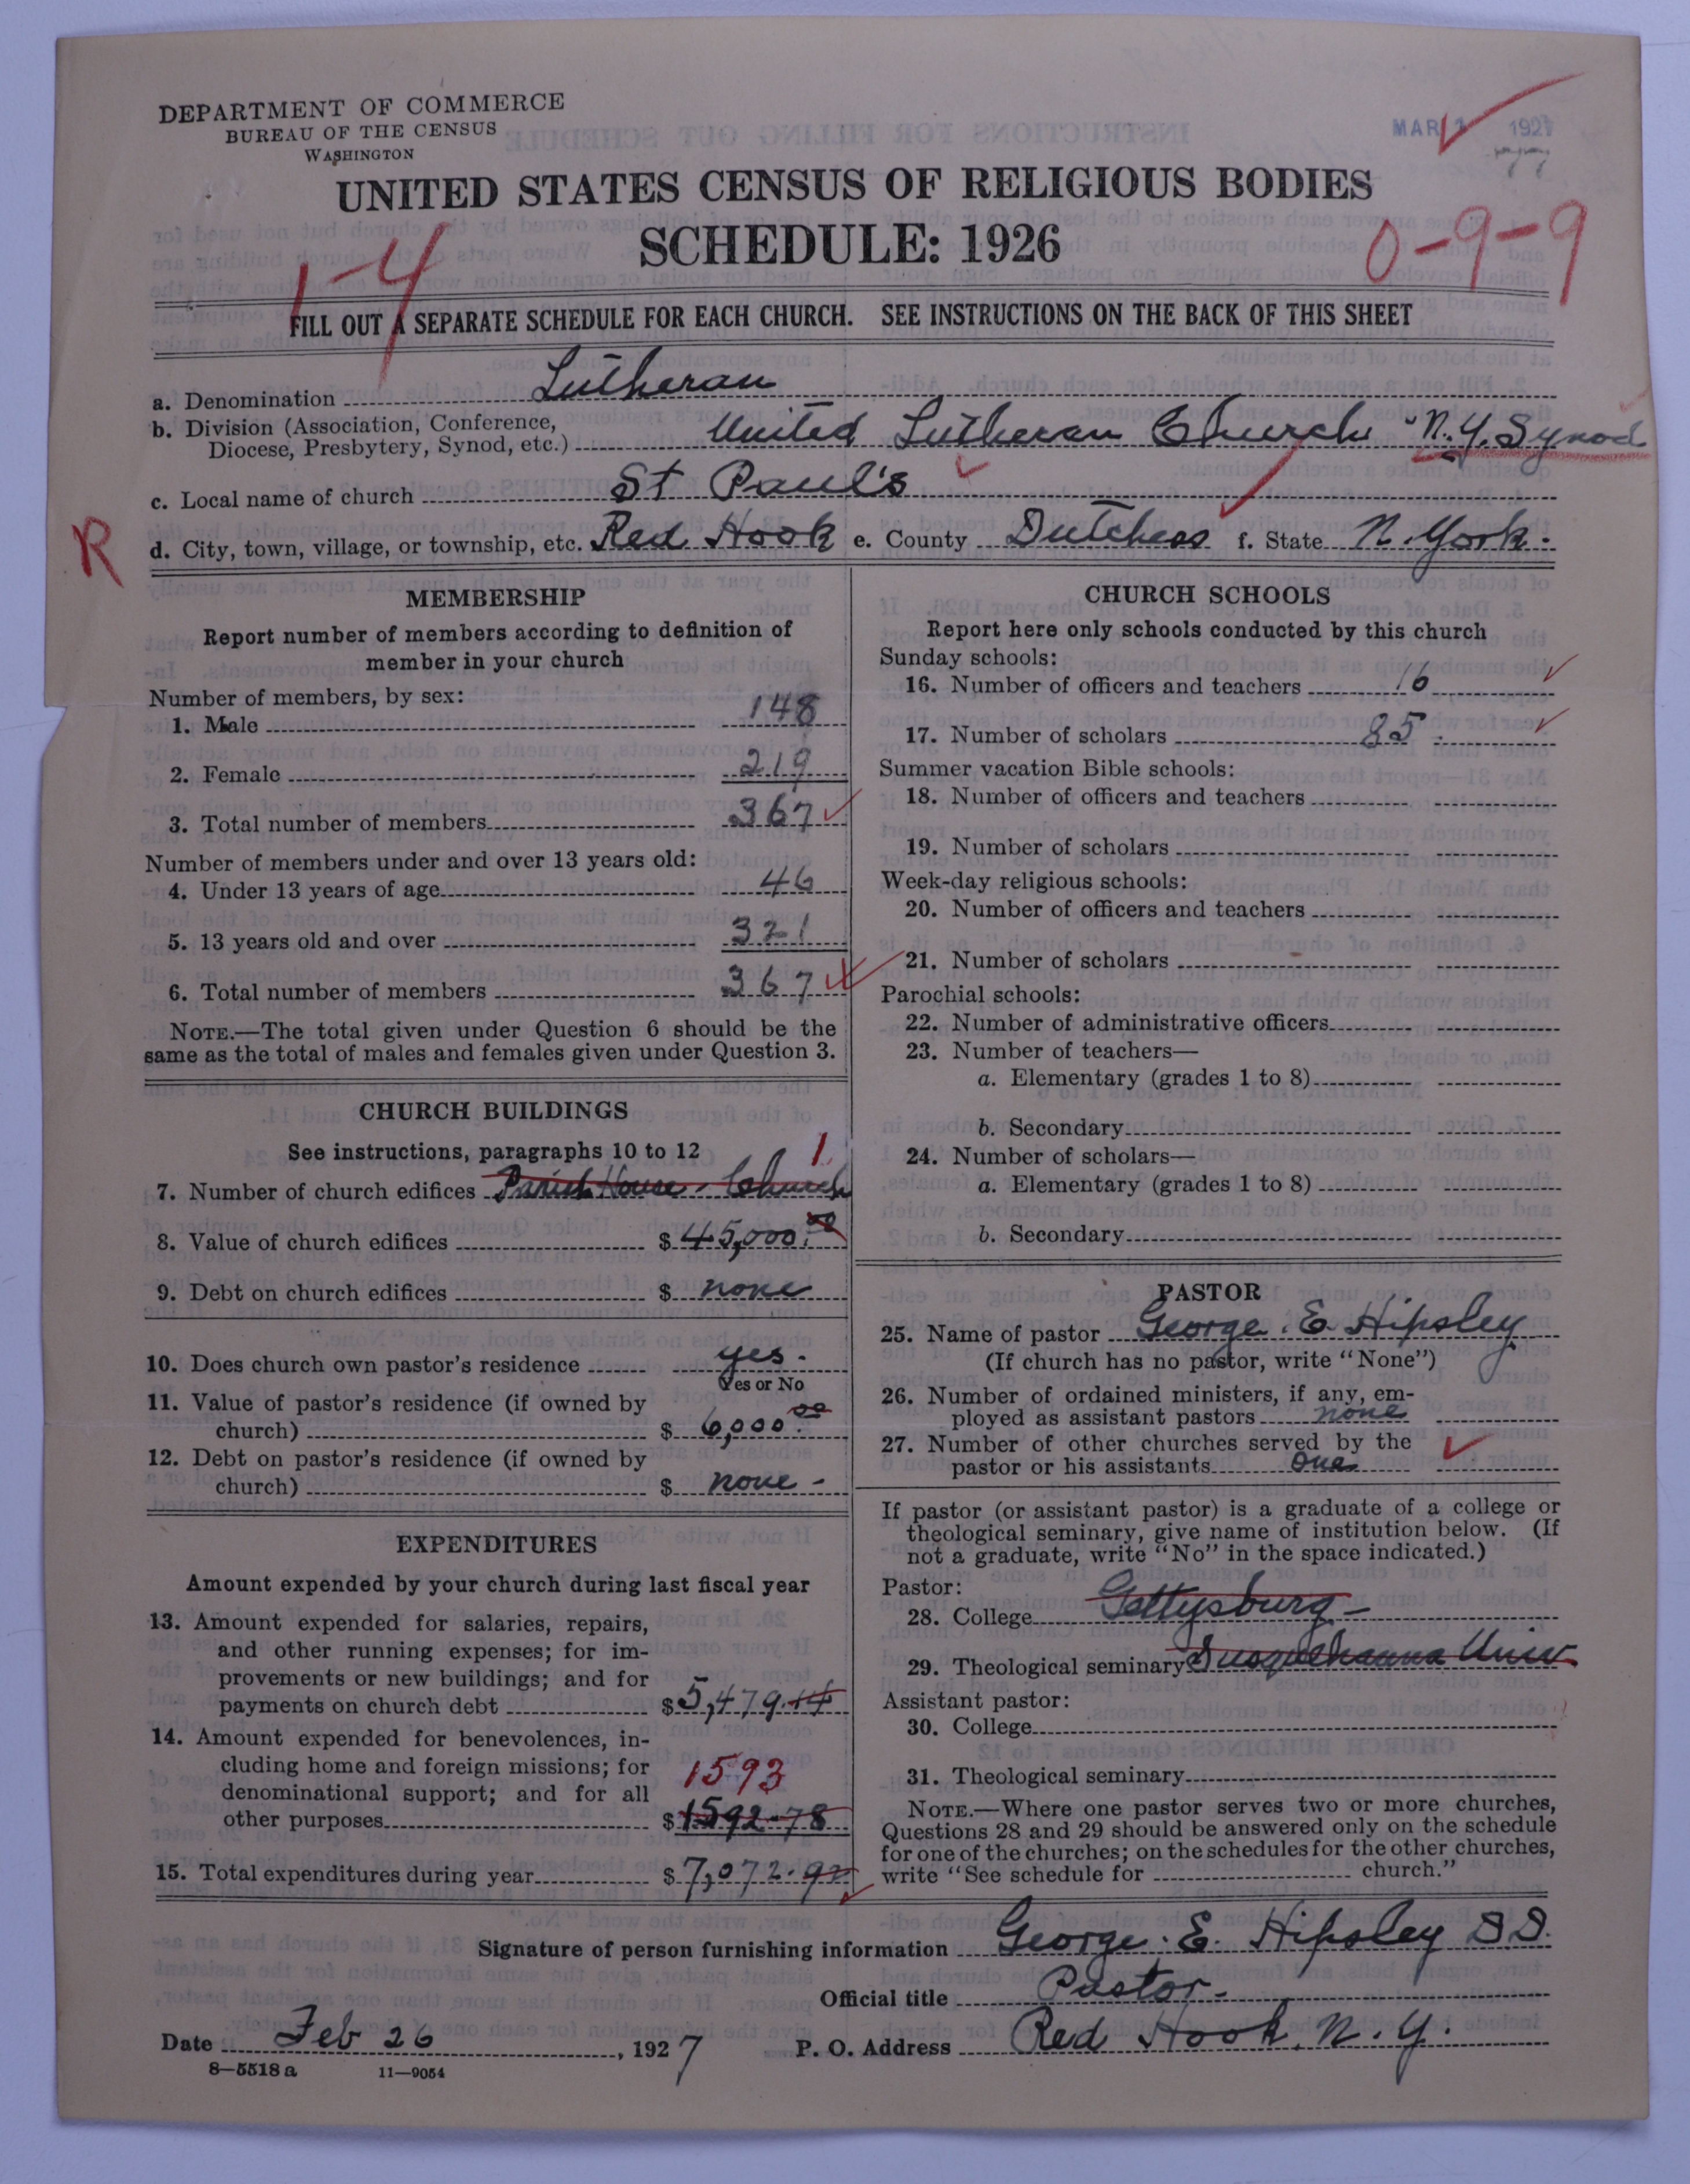 DEPARTMENT OF COMMERCE
BUREAU OF THE CENSUS
WASHINGTON
MAR 1 1927
UNITED STATES CENSUS OF RELIGIOUS BODIES
SCHEDULE: 1926
1-4
0-9-9
FILL OUT A SEPARATE SCHEDULE FOR EACH CHURCH. SEE INSTRUCTIONS ON THE BACK OF THIS SHEET
a. Denomination Lutheran
b. Division (Association, Conference,
Diocese, Presbytery, Synod, etc.) United Lutheran Church "N.Y. Synod
c. Local name of church St Paul's
R
d. City, town, village, or township, etc. Red Hook e. County Dutchess f. State N. York.
MEMBERSHIP
Report number of members according to definition of
member in your church
Number of members, by sex:
1. Male 148
2. Female 219
3. Total number of members 367
Number of members under and over 13 years old:
4. Under 13 years of age 46
5. 13 years old and over 321
6. Total number of members 367
NOTE.—The total given under Question 6 should be the
same as the total of males and females given under Question 3.
CHURCH BUILDINGS
See instructions, paragraphs 10 to 12
1
7. Number of church edifices Parish House - Church
8. Value of church edifices $ 45,000.00
9. Debt on church edifices $ none
10. Does church own pastor's residence yes.
Yes or No
11. Value of pastor's residence (if owned by
church) $ 6,000.00
12. Debt on pastor's residence (if owned by
church) $ none -
EXPENDITURES
Amount expended by your church during last fiscal year
13. Amount expended for salaries, repairs,
and other running expenses; for im-
provements or new buildings; and for
payments on church debt $ 5,479.14
14. Amount expended for benevolences, in-
cluding home and foreign missions; for
denominational support; and for all
1593
other purposes $ 1592-78
15. Total expenditures during year $ 7,072.92
CHURCH SCHOOLS
Report here only schools conducted by this church
Sunday schools:
16. Number of officers and teachers 16
17. Number of scholars 85
Summer vacation Bible schools:
18. Number of officers and teachers
19. Number of scholars
Week-day religious schools:
20. Number of officers and teachers
21. Number of scholars
Parochial schools:
22. Number of administrative officers
23. Number of teachers—
a. Elementary (grades 1 to 8)
b. Secondary
24. Number of scholars—
a. Elementary (grades 1 to 8)
b. Secondary
PASTOR
25. Name of pastor George. E. Hipsley
(If church has no pastor, write "None")
26. Number of ordained ministers, if any, em-
ployed as assistant pastors none
27. Number of other churches served by the
pastor or his assistants One
If pastor (or assistant pastor) is a graduate of a college or
theological seminary, give name of institution below. (If
not a graduate, write "No" in the space indicated.)
Pastor:
28. College Gettysburg -
29. Theological seminary Susquehanna Univ.
Assistant pastor:
30. College
31. Theological seminary
NOTE.—Where one pastor serves two or more churches,
Questions 28 and 29 should be answered only on the schedule
for one of the churches; on the schedules for the other churches,
write "See schedule for church."
Signature of person furnishing information George. E. Hipsley D.D.
Official title Pastor-
Date Feb 26, 1927 P. O. Address Red Hook. N. Y.
8—5518 a 11—9054